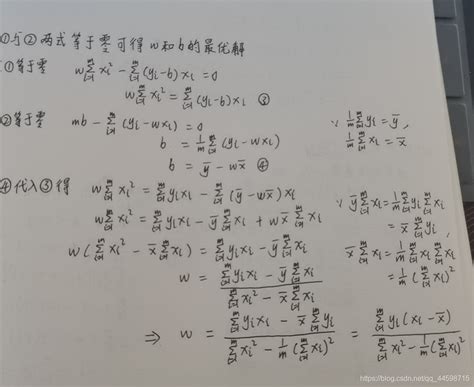 ①与②两式等于零可得w和b的最优解
①等于零 w∑ᵢ₌₁ᵐ xᵢ² - ∑ᵢ₌₁ᵐ (yᵢ-b)xᵢ = 0
w∑ᵢ₌₁ᵐ xᵢ² = ∑ᵢ₌₁ᵐ (yᵢ-b)xᵢ ③
②等于零 mb - ∑ᵢ₌₁ᵐ (yᵢ-wxᵢ) = 0
b = 1/m ∑ᵢ₌₁ᵐ (yᵢ-wxᵢ)
b = ȳ - wx̄ ④
∵ 1/m ∑ᵢ₌₁ᵐ yᵢ = ȳ,
1/m ∑ᵢ₌₁ᵐ xᵢ = x̄
④代入③得 w∑ᵢ₌₁ᵐ xᵢ² = ∑ᵢ₌₁ᵐ yᵢxᵢ - ∑ᵢ₌₁ᵐ (ȳ-wx̄)xᵢ
w∑ᵢ₌₁ᵐ xᵢ² = ∑ᵢ₌₁ᵐ yᵢxᵢ - ȳ∑ᵢ₌₁ᵐ xᵢ + wx̄∑ᵢ₌₁ᵐ xᵢ
w(∑ᵢ₌₁ᵐ xᵢ² - x̄∑ᵢ₌₁ᵐ xᵢ) = ∑ᵢ₌₁ᵐ yᵢxᵢ - ȳ∑ᵢ₌₁ᵐ xᵢ
w = (∑ᵢ₌₁ᵐ yᵢxᵢ - ȳ∑ᵢ₌₁ᵐ xᵢ) / (∑ᵢ₌₁ᵐ xᵢ² - x̄∑ᵢ₌₁ᵐ xᵢ)
∵ ȳ∑ᵢ₌₁ᵐ xᵢ = 1/m ∑ᵢ₌₁ᵐ yᵢ ∑ᵢ₌₁ᵐ xᵢ
= x̄∑ᵢ₌₁ᵐ yᵢ,
x̄∑ᵢ₌₁ᵐ xᵢ = 1/m ∑ᵢ₌₁ᵐ xᵢ ∑ᵢ₌₁ᵐ xᵢ
= 1/m (∑ᵢ₌₁ᵐ xᵢ)²
⇒ w = (∑ᵢ₌₁ᵐ yᵢxᵢ - x̄∑ᵢ₌₁ᵐ yᵢ) / (∑ᵢ₌₁ᵐ xᵢ² - 1/m (∑ᵢ₌₁ᵐ xᵢ)²) = (∑ᵢ₌₁ᵐ yᵢ(xᵢ-x̄)) / (∑ᵢ₌₁ᵐ xᵢ² - 1/m (∑ᵢ₌₁ᵐ xᵢ)²)
https://blog.csdn.net/qq_44598715